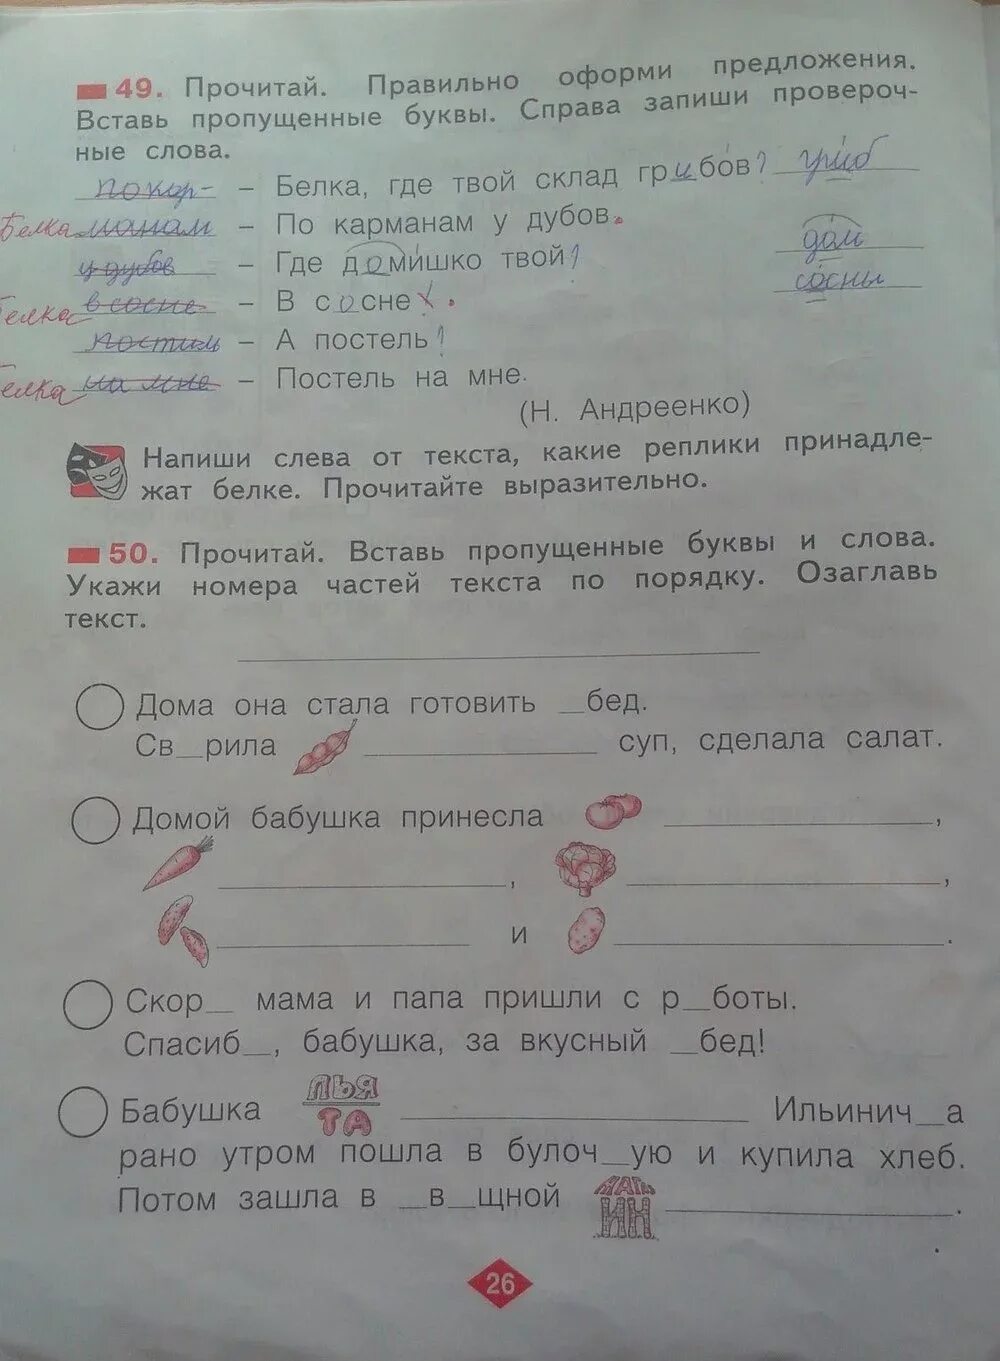 49. Прочитай. Правильно оформи предложения.
Вставь пропущенные буквы. Справа запиши провероч-
ные слова.
покар- – Белка, где твой склад грибов? гриб
Белка манам – По карманам у дубов.
у дубов – Где домишко твой? дом
Белка в сосне – В сосне. сосны
постиль – А постель?
Белка на мне – Постель на мне.
(Н. Андреенко)
Напиши слева от текста, какие реплики принадле-
жат белке. Прочитайте выразительно.
50. Прочитай. Вставь пропущенные буквы и слова.
Укажи номера частей текста по порядку. Озаглавь
текст.
Дома она стала готовить _бед.
Св_рила ___ суп, сделала салат.
Домой бабушка принесла ___,
___, ___,
___ и ___.
Скор_ мама и папа пришли с р_боты.
Спасиб_, бабушка, за вкусный _бед!
Бабушка ЛЬЯ ТА ___ Ильинич_а
рано утром пошла в булоч_ую и купила хлеб.
Потом зашла в _в_щной МАГАЗ ИН ___.
26